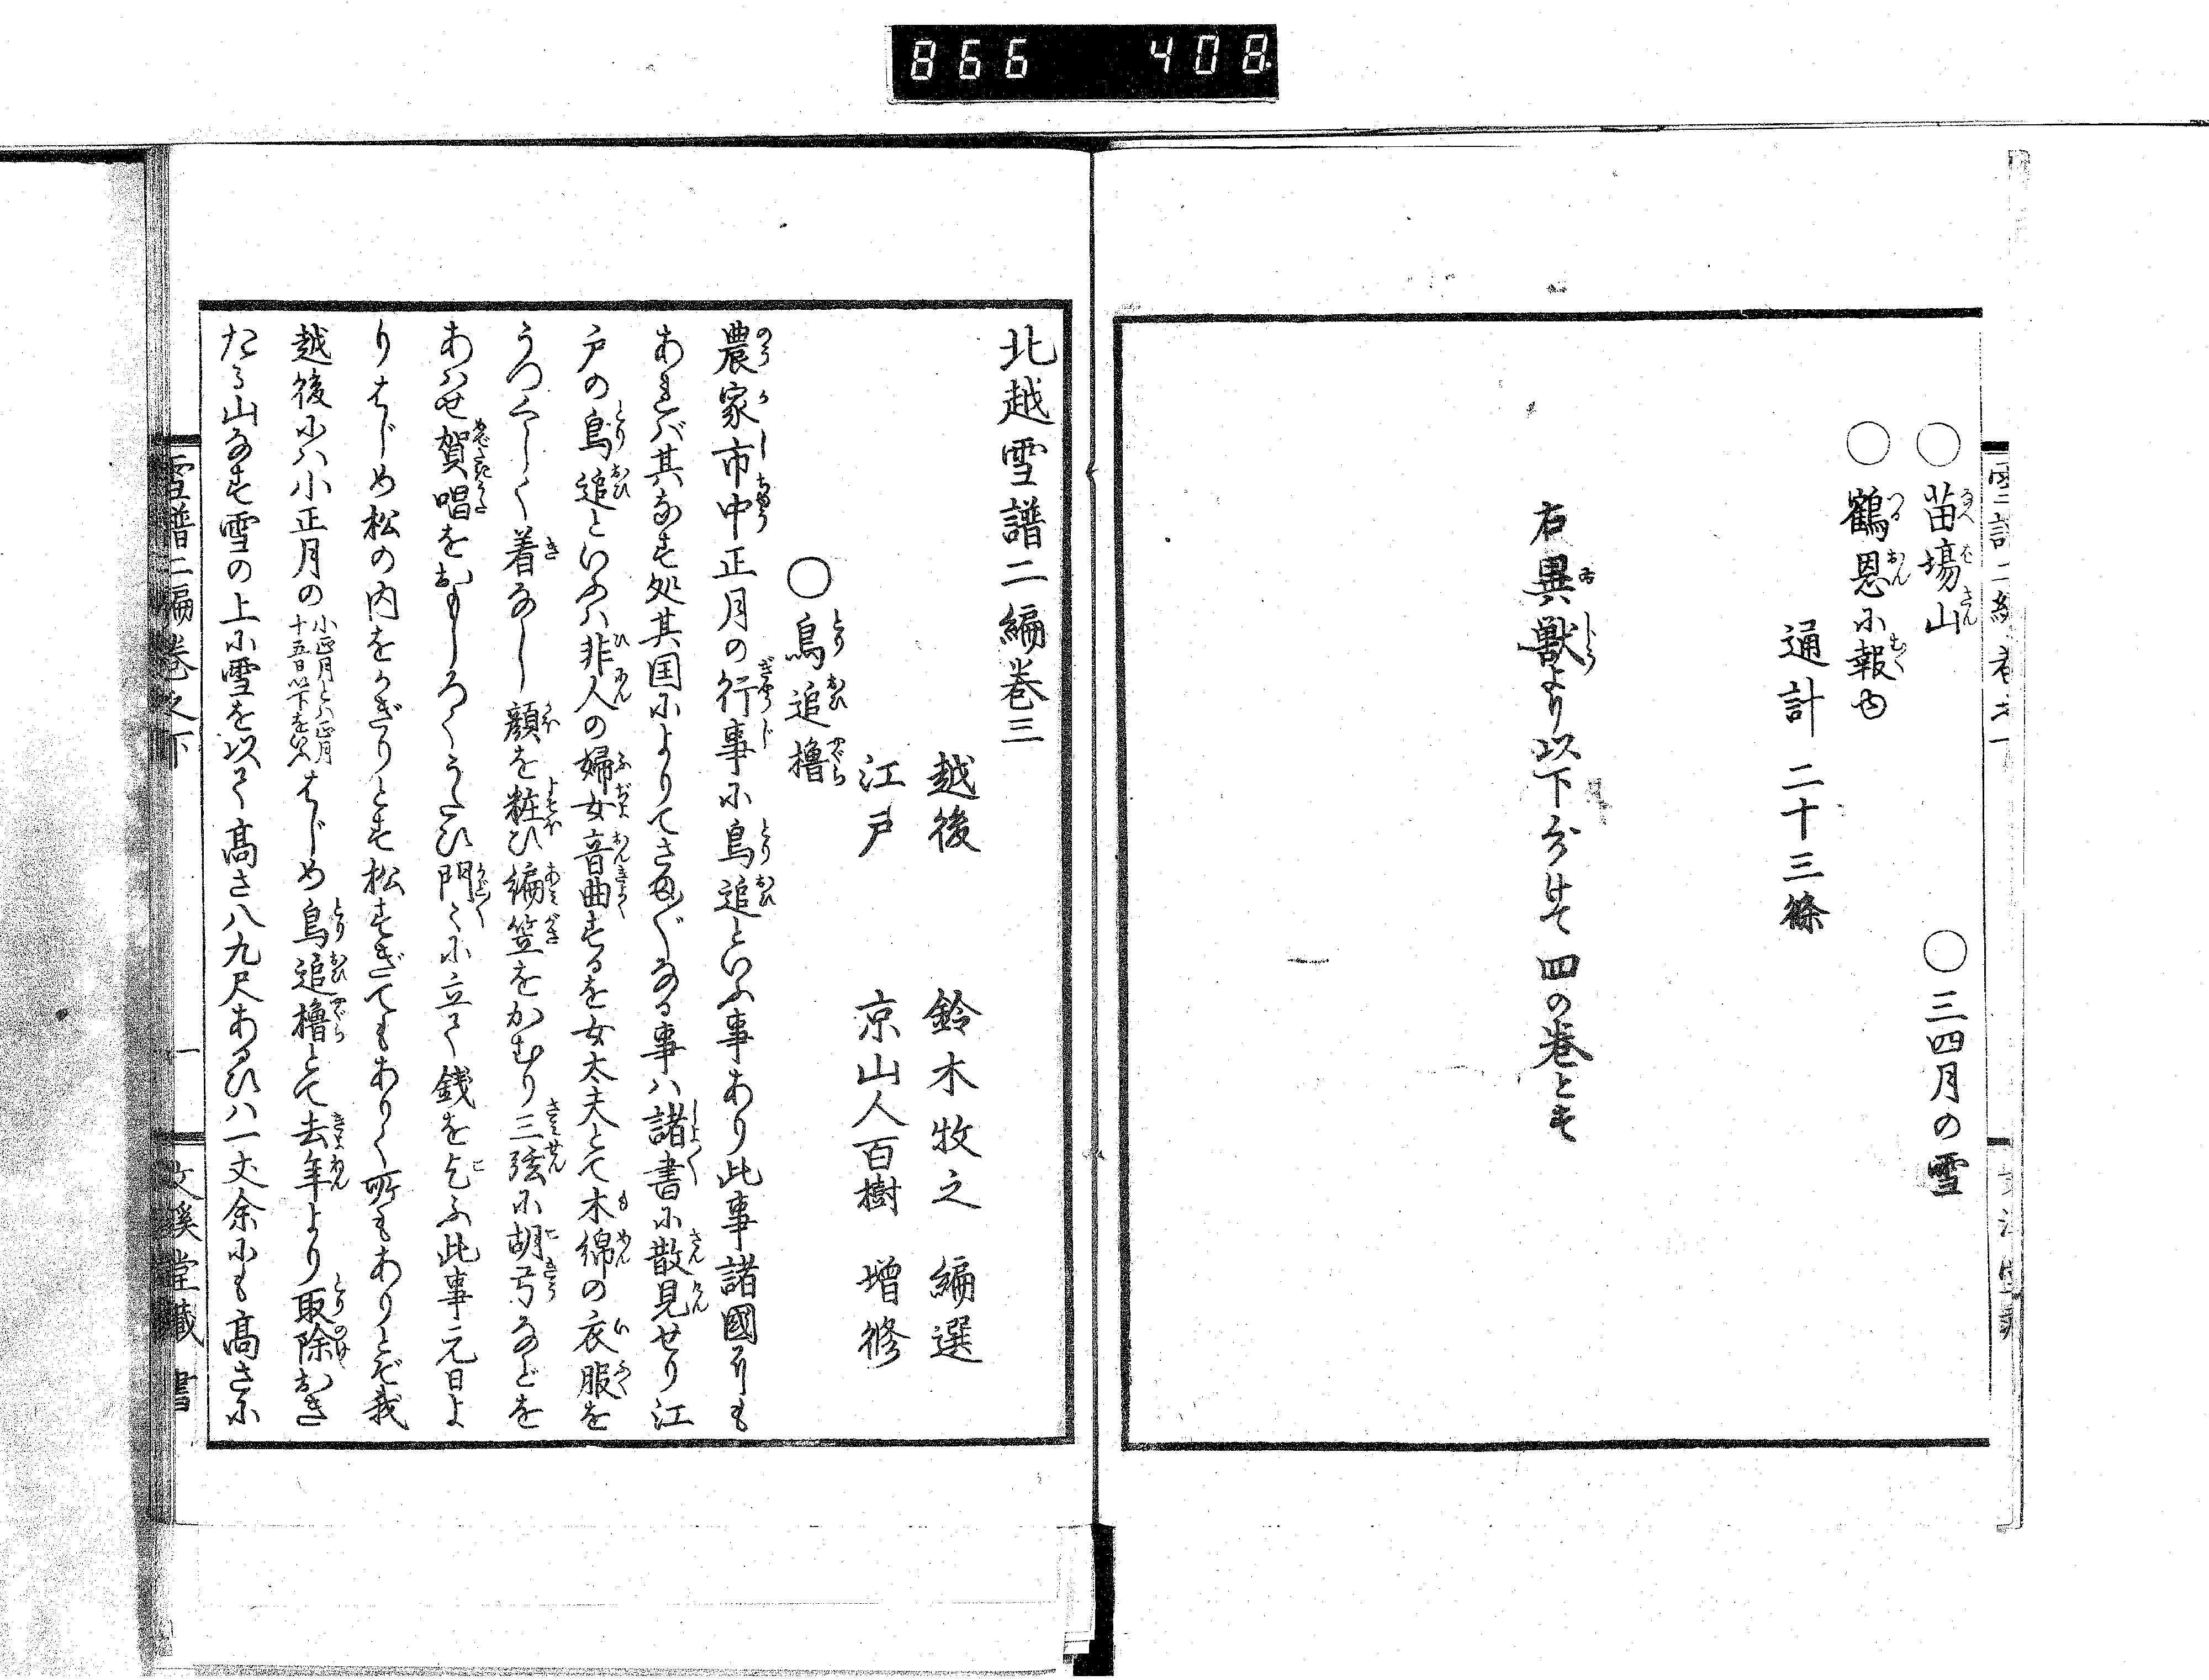 866 408
○苗場山 ○三四月の雪
○鶴恩に報ゆ
通計 二十三條
右異獣より以下分けて四の巻とす
北越雪譜二編巻三
越後 鈴木牧之 編選
江戸 京山人百樹 増修
○鳥追櫓
農家市中正月の行事に鳥追といふ事あり此事諸國にも
あれバ其なす処其国によりてさま〴〵なる事ハ諸書に散見せり江
戸の鳥追といふハ非人の婦女音曲するを女太夫とて木綿の衣服を
うつくしく着なし顔を粧ひ編笠をかむり三弦に胡弓などを
あハせ賀唱をおもしろくうたひ門々に立て銭を乞ふ此事元日よ
りはじめ松の内をかぎりとす松すぎてもありく所もありとぞ我
越後にハ小正月の 小正月とハ正月十五日以下をいふ はじめ鳥追櫓とて去年より取除おき
たる山なす雪の上に雪を以て高さ八九尺あるひハ一丈余にも高さに
雪譜二編巻之下 一 文溪堂藏書